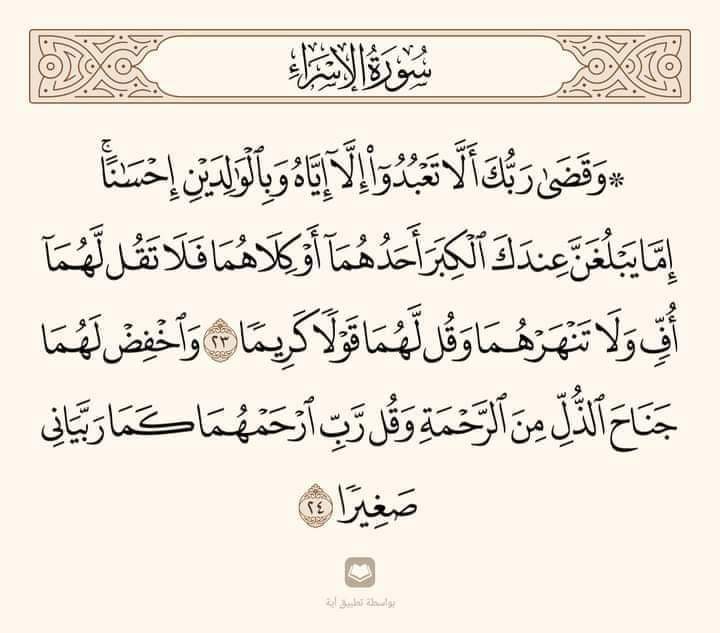 سُورَةُ الإِسۡرَاءِ
۞ وَقَضَىٰ رَبُّكَ أَلَّا تَعۡبُدُوٓاْ إِلَّآ إِيَّاهُ وَبِٱلۡوَٰلِدَيۡنِ إِحۡسَٰنًاۚ
إِمَّا يَبۡلُغَنَّ عِندَكَ ٱلۡكِبَرَ أَحَدُهُمَآ أَوۡ كِلَاهُمَا فَلَا تَقُل لَّهُمَآ
أُفّٖ وَلَا تَنۡهَرۡهُمَا وَقُل لَّهُمَا قَوۡلٗا كَرِيمٗا ٢٣ وَٱخۡفِضۡ لَهُمَا
جَنَاحَ ٱلذُّلِّ مِنَ ٱلرَّحۡمَةِ وَقُل رَّبِّ ٱرۡحَمۡهُمَا كَمَا رَبَّيَانِي
صَغِيرٗا ٢٤
بواسطة تطبيق آية